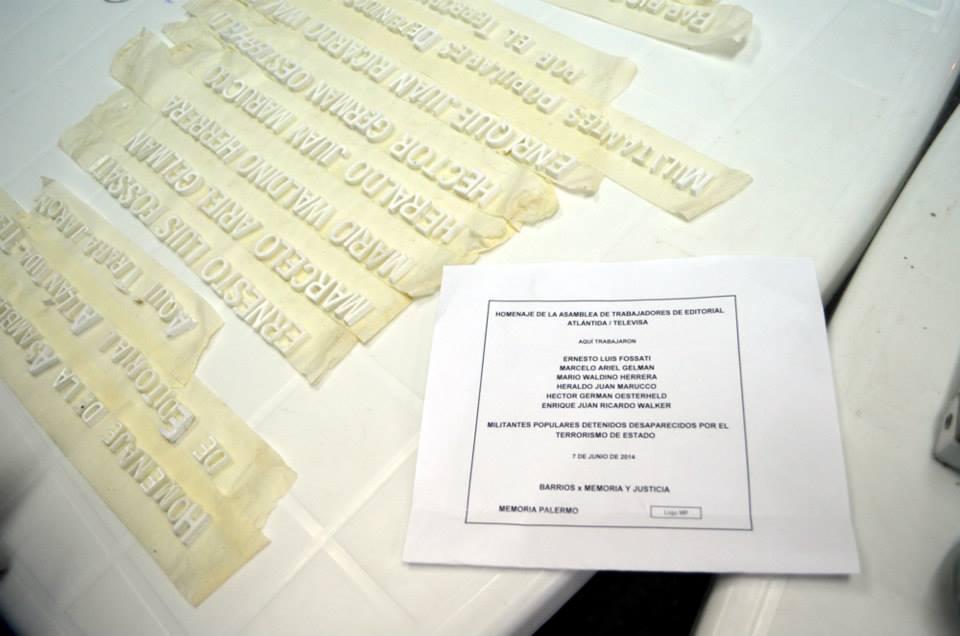 HOMENAJE DE LA
DE EDITORIAL
AQUÍ TRABAJARON
ERNESTO LUIS FOSSATI
MARCELO ARIEL GELMAN
MARIO WALDINO HERRERA
HERALDO JUAN
HECTOR GERMAN
ENRIQUE JUAN RICARDO
MILITANTES POPULARES DETENIDOS
POR EL
HOMENAJE DE LA ASAMBLEA DE TRABAJADORES DE EDITORIAL
ATLÁNTIDA / TELEVISA
AQUÍ TRABAJARON
ERNESTO LUIS FOSSATI
MARCELO ARIEL GELMAN
MARIO WALDINO HERRERA
HERALDO JUAN MARUCCO
HECTOR GERMAN OESTERHELD
ENRIQUE JUAN RICARDO WALKER
MILITANTES POPULARES DETENIDOS DESAPARECIDOS POR EL
TERRORISMO DE ESTADO
7 DE JUNIO DE 2014
BARRIOS x MEMORIA Y JUSTICIA
MEMORIA PALERMO Logo MP